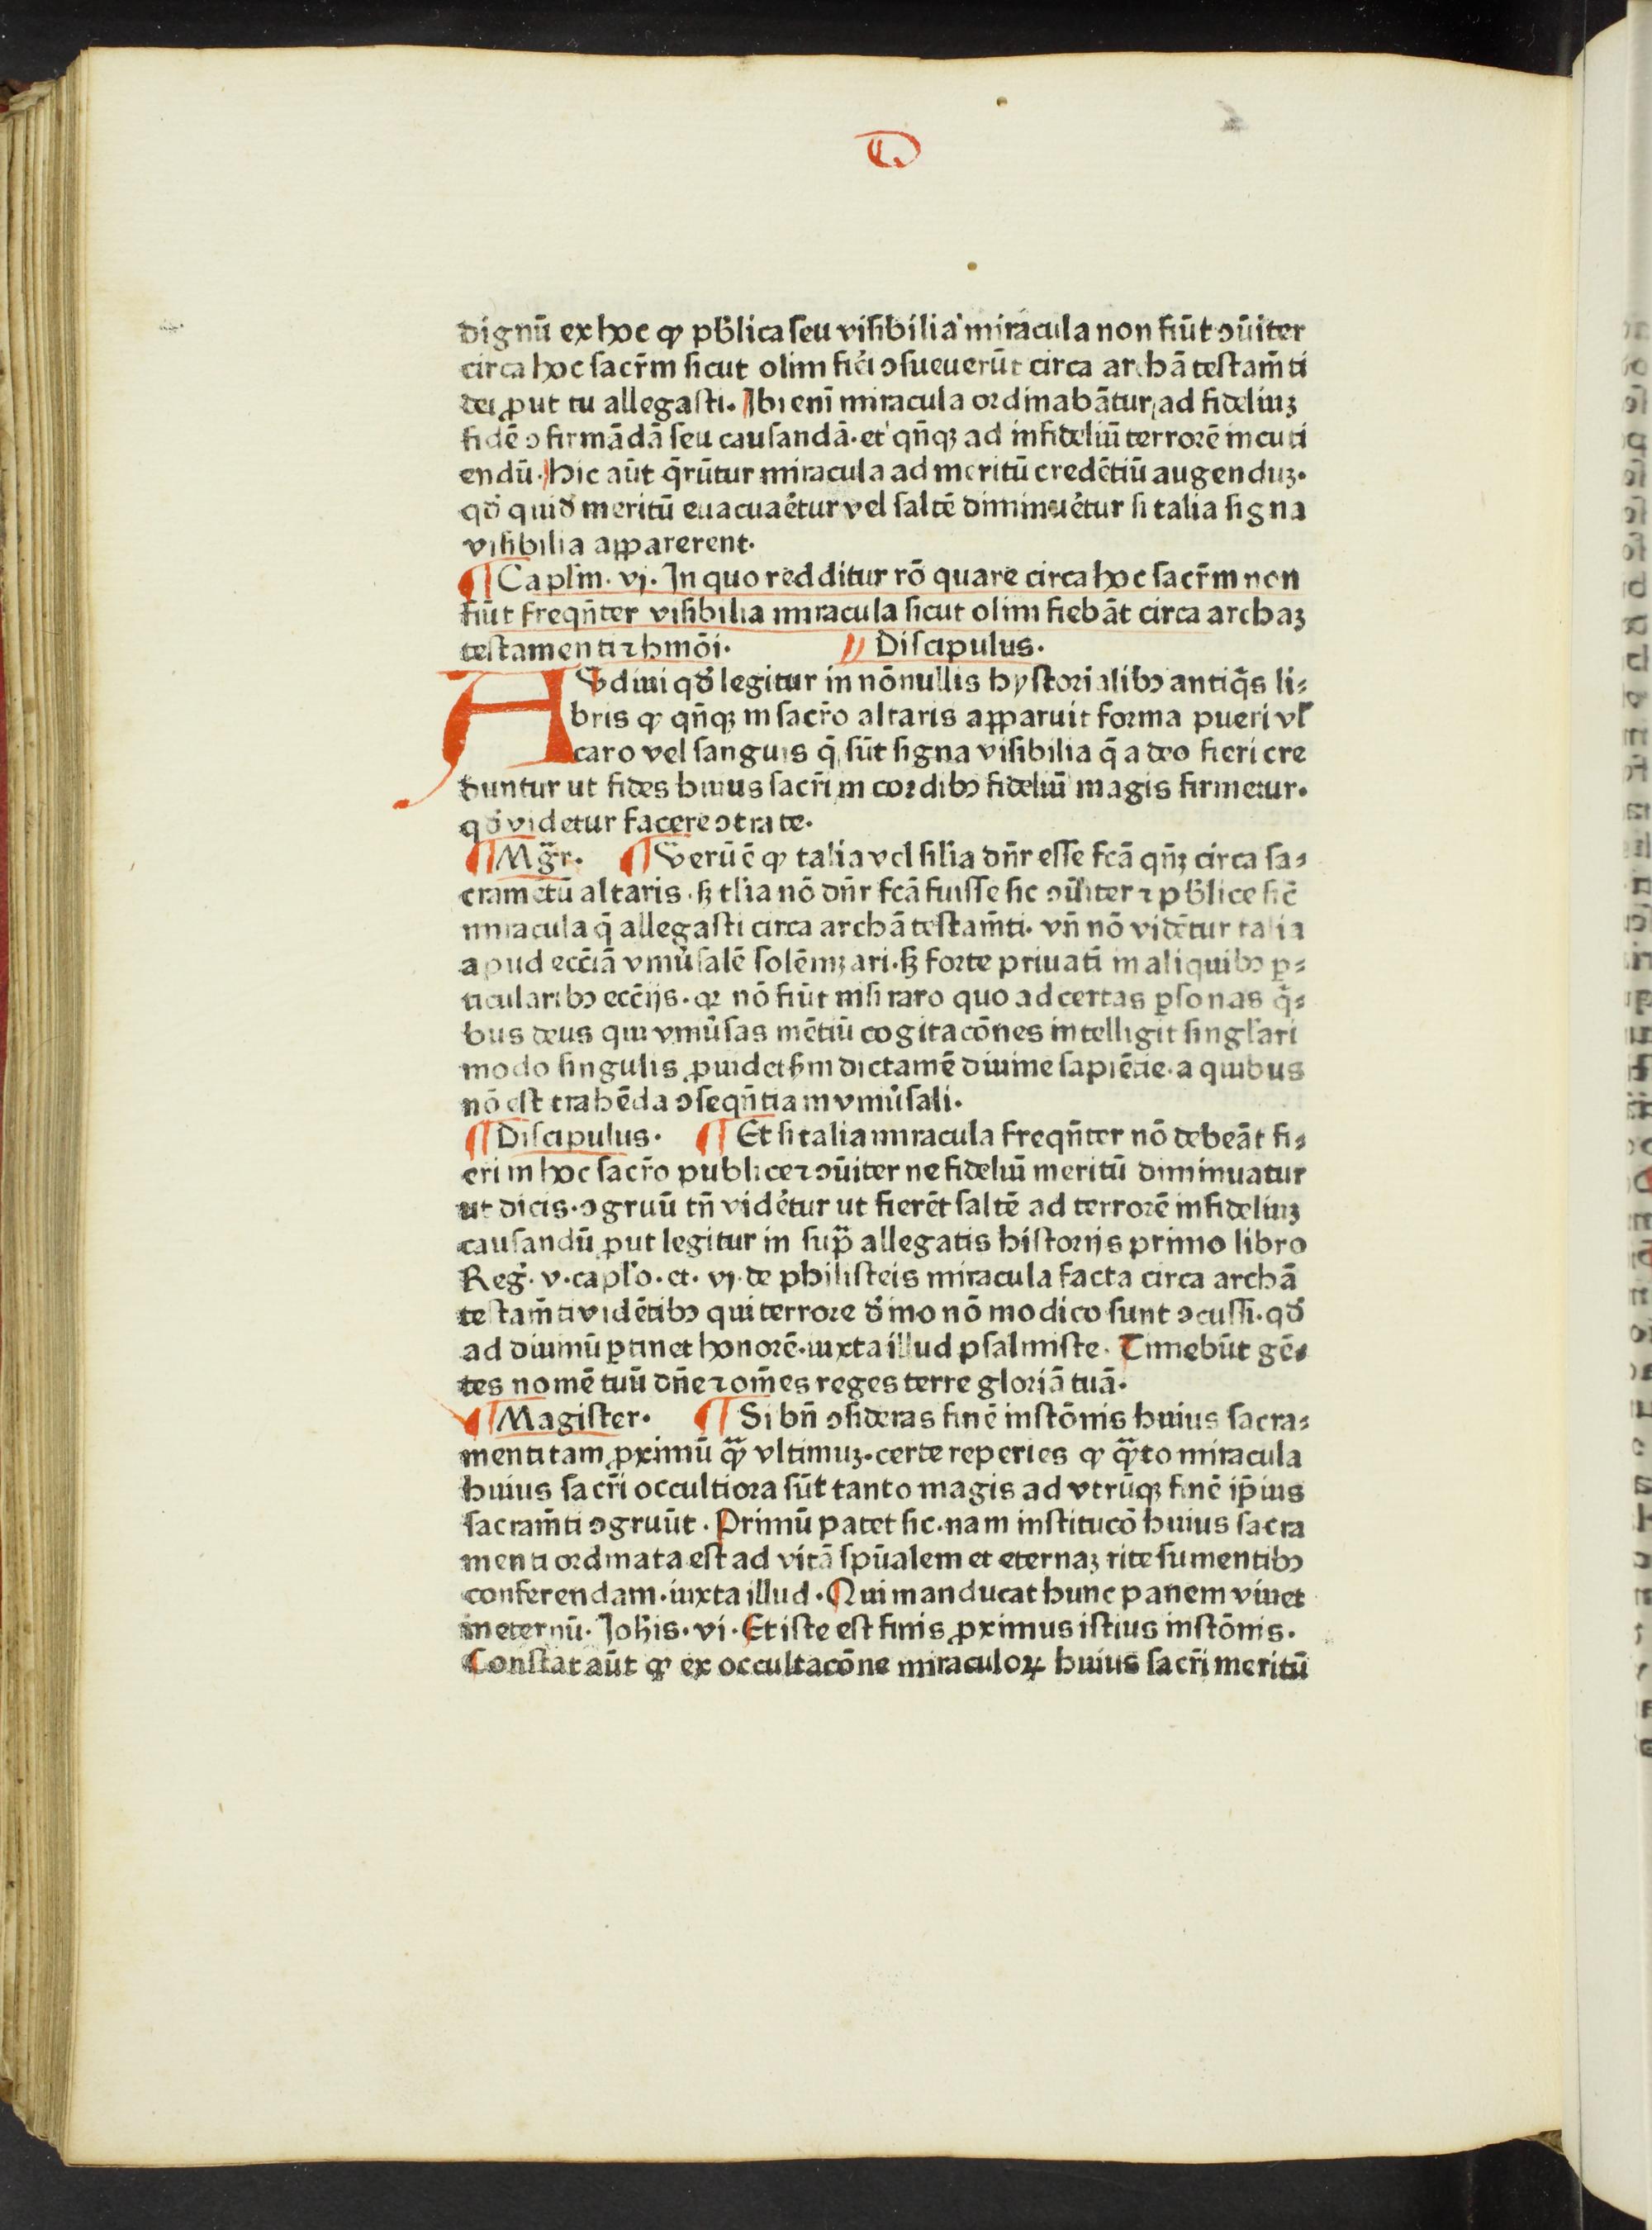 D
dignū ex hoc ꝙ pb̄lica ſeu viſibilia miracula non fiūt ↄūiter
circa hoc ſacr̄m ſicut olim fiēi ↄſueuerūt circa archā teſtam̄ti
dei ꝓut tu allegaſti. Ibi enī miracula ordinabātur ad fideliuꝫ
fidē ↄfirmādā ſeu cauſandā· et qn̄qꝫ ad infideliū terrorē incuti
endū· hic aūt q̄rūtur miracula ad meritū credētiū augenduꝫ·
qď quiď meritū euacuaētur vel ſaltē diminuētur ſi talia ſigna
viſibilia apparerent·
¶ Capl̄m· vj· In quo redditur rō quare circa hoc ſacr̄m non
fiūt freqn̄ter viſibilia miracula ſicut olim fiebāt circa archaꝫ
teſtamenti ⁊ hmōi· Diſcipulus·
AUdiui qď legitur in nōnullis hyſtorialibꝰ antiq̄s li⸗
bris ꝙ qn̄qꝫ in ſacr̄o altaris apparuit forma pueri vl̄
caro vel ſanguis q̄ ſūt ſigna viſibilia q̄ a deo fieri cre
duntur ut fides huius ſacr̄i in cordibꝰ fideliū magis firmetur·
qď videtur facere ↄtra te·
¶ Mgr̄· ¶ Verū ē ꝙ talia vel ſil̄ia dn̄r eſſe fcā qn̄ꝫ circa ſa⸗
crametū altaris· ſꝫ tl̄ia nō dn̄r fcā fuiſſe ſic ↄūiter ⁊ pb̄lice ſic̄
miracula q̄ allegaſti circa archā teſtam̄ti· vn̄ nō vidētur talia
apud ecc̄iā vniu̇ſalē ſolēniꝫari· ſꝫ forte priuatī in aliquibꝰ ꝑ⸗
ticularibꝰ ecc̄ijs· qꝛ nō fiūt niſi raro quo ad certas ꝑſonas q̄⸗
bus deus qui vniu̇ſas mētiū cogitacōnes intelligit ſingl̄ari
modo ſingulis ꝓuidet ſm̄ dictamē diuine ſapiētie· a quibus
nō eſt trahēda ↄſeqn̄tia in vniu̇ſali·
¶ Diſcipulus· ¶ Et ſi talia miracula freqn̄ter nō debeāt fi⸗
eri in hoc ſacr̄o publice ⁊ ↄūiter ne fideliū meritū diminuatur
ut dicis· ↄgruū tn̄ vidētur ut fierēt ſaltē ad terrorē infideliuꝫ
cauſandū ꝓut legitur in ſup̄ allegatis hiſtorijs primo libro
Reḡ· v· capl̄o· et· vj· de philiſteis miracula facta circa archā
teſtam̄ti vidētibꝰ qui terrore dīno nō modico ſunt ↄcuſſi· qď
ad diuinū ꝑtinet honorē· iuxta illud pſalmiſte· Timebūt gē⸗
tes nomē tuū dn̄e ⁊ om̄es reges terre gloriā tuā·
¶ Magiſter· ¶ Si bn̄ ↄſideras finē inſtōnis huius ſacra⸗
menti tam ꝓximū qͣꝫ vltimuꝫ· certe reperies ꝙ qͣto miracula
huius ſacr̄i occultiora ſūt tanto magis ad vtrūqꝫ finē ip̄ius
ſacram̄ti ↄgruūt· Primū patet ſic· nam inſtitucō huius ſacra
menti ordinata eſt ad vitā ſpūalem et eternaꝫ rite ſumentibꝰ
conferendam· iuxta illud· Qui manducat hunc panem viuet
in eternū· Joh̄is· vi· Et iſte eſt finis ꝓximus iſtius inſtōnis·
Conſtat aūt ꝙ ex occultacōne miraculoꝝ huius ſacr̄i meritū